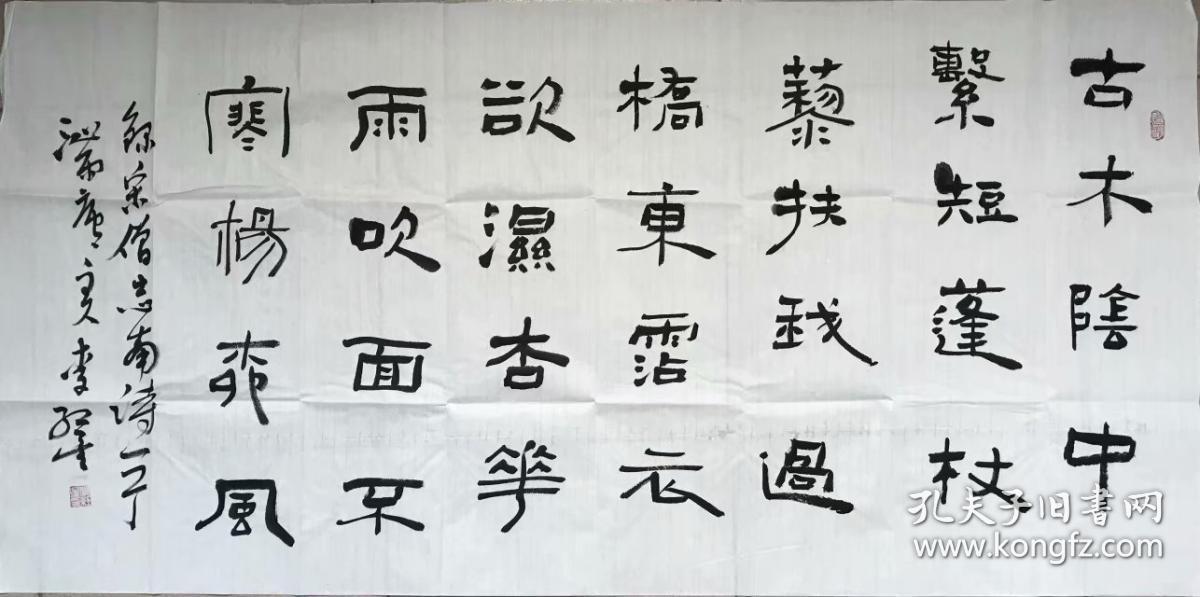 古木陰中
繫短蓬杖
藜扶我過
橋東霑衣
欲濕杏花
雨吹面不
寒楊柳風
錄宋僧志南詩一
主人李
孔夫子旧书网
www.kongfz.com